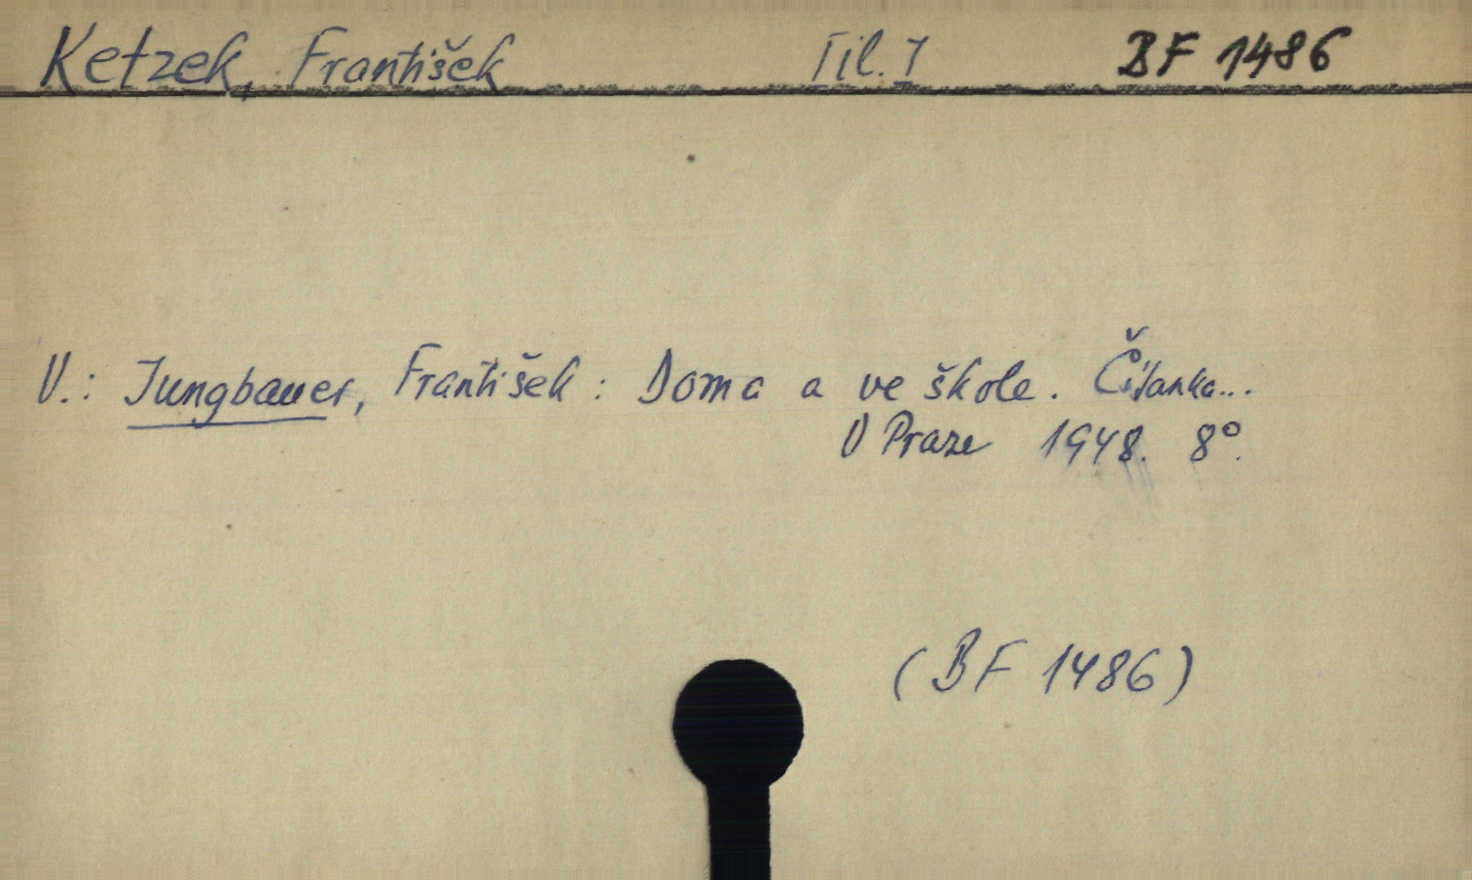 Ketzek, František Til. I BF 1486
V.: Jungbauer, František: Doma a ve škole. Čítanka...
V Praze 1948. 8°.
(BF 1486)